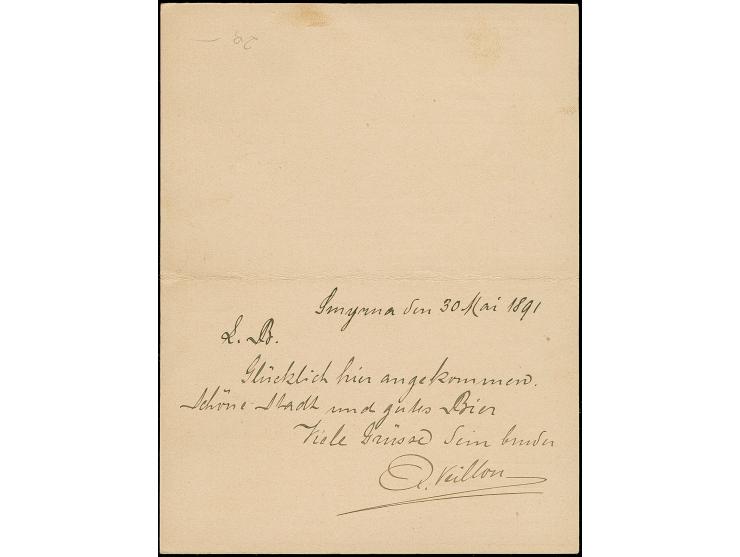 Smyrna den 30 Mai 1891
L. B.
Glücklich hier angekommen.
Schöne Stadt und gutes Bier
Viele Grüsse Dein bruder
A. Veillon